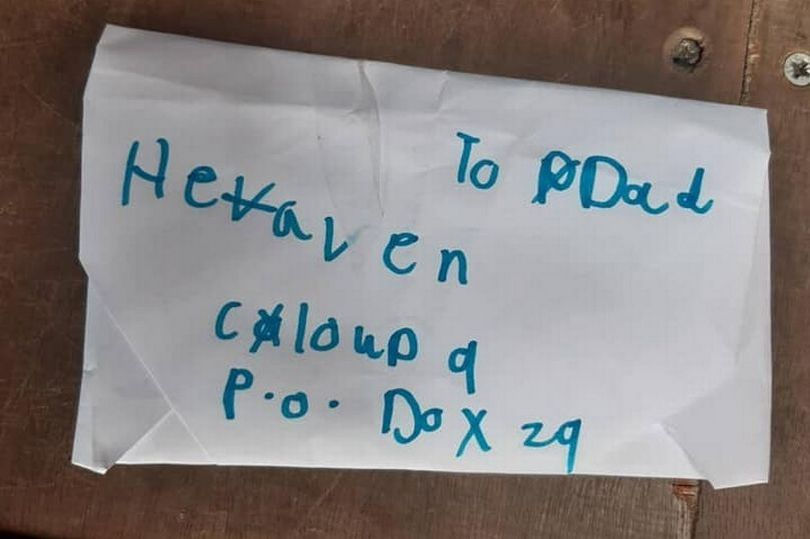 To Dad
Heaven
Cloud 9
P.O. Dox 29